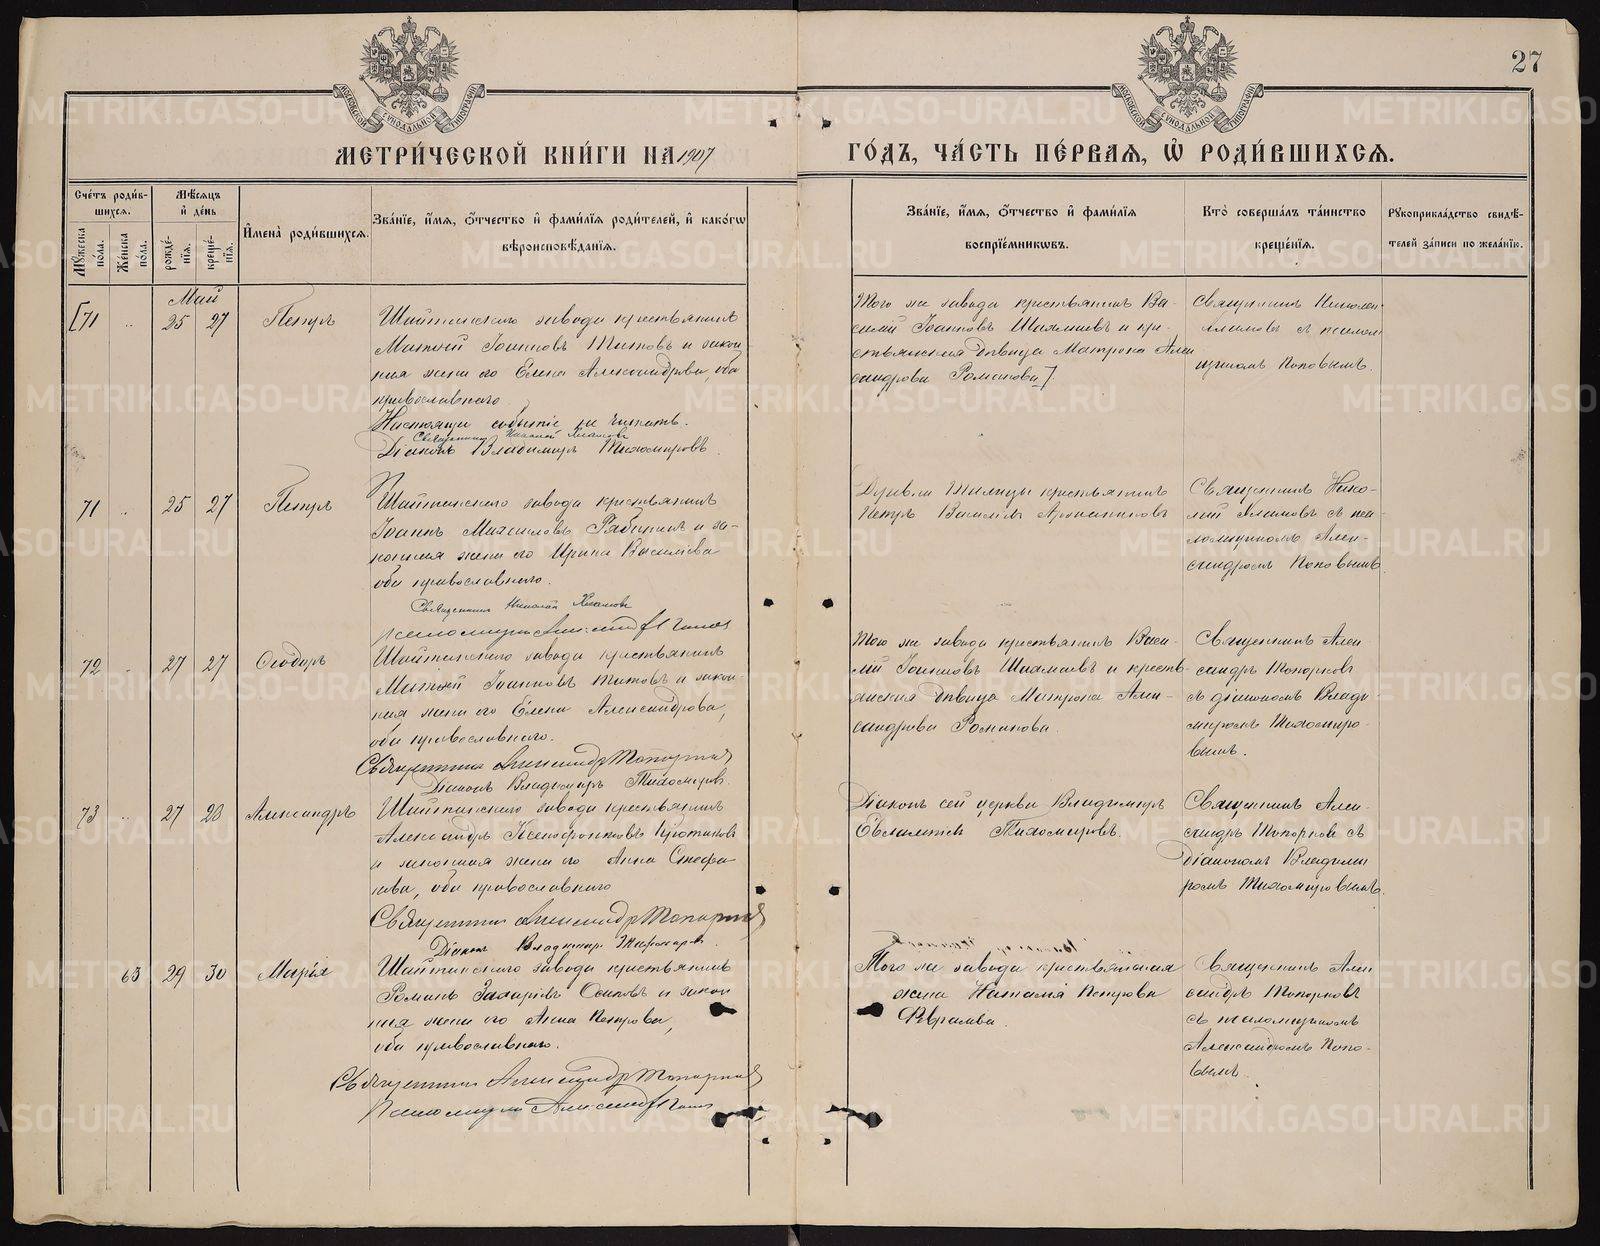 27
МОСКОВСКОЙ СѴНОДАЛЬНОЙ ТИПОГРАФІИ
МОСКОВСКОЙ СѴНОДАЛЬНОЙ ТИПОГРАФІИ
МЕТРИ́ЧЕСКОЙ КНИ́ГИ НА 1907
ГО́ДЪ, ЧА́СТЬ ПЕ́РВАЯ, Ѡ҆ РОДИ́ВШИХСЯ.
Сче́тъ роди́в-
шихся.
Мѣ́сяцъ
и҆ де́нь
Мꙋжеска по́ла.
Же́нска по́ла.
рожде́-
нїя.
креще́-
нїя.
И҆мена̀ роди́вшихся.
Зва́нїе, и҆́мя, ѻ҆́тчество и҆ фами́лїя роди́телей, и҆ како́гѡ
вѣроисповѣ́данїя.
Зва́нїе, и҆́мя, ѻ҆́тчество и҆ фами́лїя
воспрїе́мникѡвъ.
Кто̀ соверша́лъ та́инство
креще́нїя.
Рꙋкоприкла́дство свидѣ́-
телей за́писи по жела́нїю.
Май
[71 .. 25 27 Петръ
Шайтанскаго завода крестьянинъ
Матѳей Іоанновъ Титовъ и закон-
ная жена его Елена Александрова, оба
православнаго
Настоящее событіе не считать.
Священникъ Николай
Діаконъ Владимиръ Тихомировъ.
Того же завода крестьянинъ Ва-
силій Іоанновъ и кре-
стьянская дѣвица Матрона Алек
сандрова Романова].
Священникъ Николай
съ псалом
щикомъ Поповымъ.
71 .. 25 27 Петръ
Шайтанскаго завода крестьянинъ
Іоаннъ Михаиловъ Рябининъ и за-
конная жена его Ирина Василіева
оба православнаго.
Священникъ Николай
псаломщикъ Александр Попов
крестьянинъ
Петръ Василіевъ
Священникъ Нико-
лай съ пса-
ломщикомъ Алек-
сандромъ Поповымъ
72 .. 27 27 Ѳеодоръ
Шайтанскаго завода крестьянинъ
Матѳей Іоанновъ Титовъ и закон-
ная жена его Елена Александрова,
оба православнаго.
Священникъ Александр Топорков
Діаконъ Владимиръ Тихомиров.
Того же завода крестьянинъ Васи-
лій Іоанновъ и кресть-
янская дѣвица Матрона Алек-
сандрова Романова.
Священникъ Алек
сандръ Топорковъ
съ діакономъ Влади-
миромъ Тихомиро-
вымъ.
73 .. 27 28 Александръ
Шайтанскаго завода крестьянинъ
Александръ Ксенофонтовъ
и законная жена его Анна Стефа
нова, оба православнаго
Священникъ Александр Топорков
Діакон Владимир Тихомиров.
Діаконъ сей церкви Владимиръ
Тихомировъ.
Священникъ Алек-
сандръ Топорков съ
діакономъ Владими
ромъ Тихомировымъ.
63 29 30 Марія
Шайтанскаго завода крестьянинъ
Романъ Захаріевъ и закон
ная жена его Анна Петрова,
оба православнаго.
Священникъ Александр Топорков
псаломщикъ Александр Попов
Того же завода крестьянская
жена Наталія Петрова
Священникъ Алек
сандръ Топорковъ
съ псаломщикомъ
Александромъ Попо-
вымъ.
METRIKI.GASO-URAL.RU